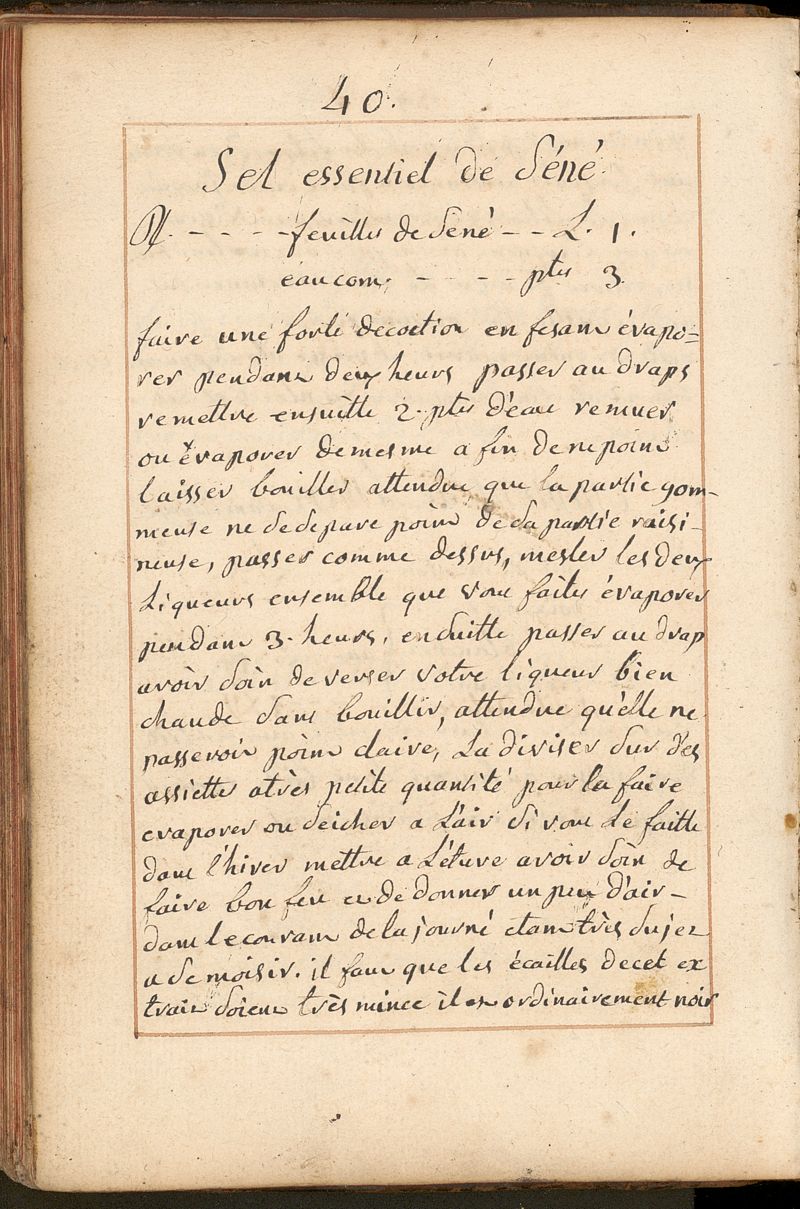 40.
Sel essentiel de Séné.
℞. - - - - feuilles de Sené - - L. 1.
eau com. - - - - ptes 3.
faire une forte decoction en fesant évapo=
rer pendant deux heurs passer au draps
remettre ensuitte 2. ptes d'eau remuer
ou évaporer de mesme a fin de ne point
laisser bouiller attendue que la partie gom-
meuse ne se separe point de sa partie raisi-
neuse, passer comme dessus, mesler les deux
Liqueurs ensemble que vous faites évaporer
pendant 3. heurs, ensuitte passer au drap
avoir soin de verser votre liqueur bien
chaude sans bouillir, attendue qu'elle ne
passeroit point claire, La diviser sur des
assiettes a très petite quantité pour la faire
evaporer ou seicher a L'air si vous Le faitte
dans l'hiver mettre a L'étuve avoir soin de
faire bon feu et de donner un peu d'air-
dans le courant de la journé etant très sujet
a se moisir. il faut que les écailles de cet ex
trait soient très mince il est ordinairement noir